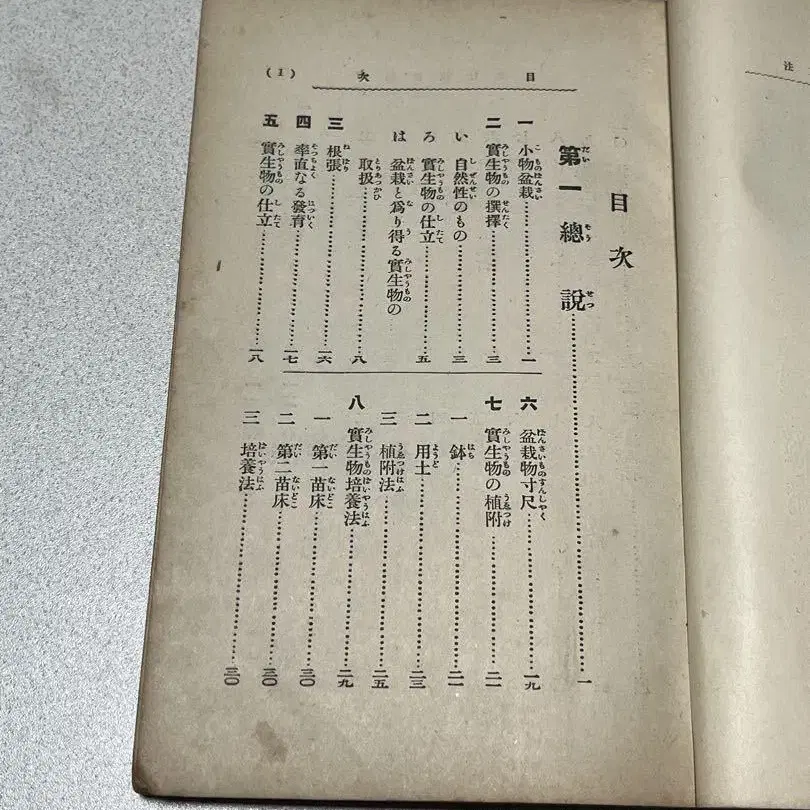 目次 (1)
目次
第一 總說……一
一 小物盆栽……一
二 實生物の撰擇……三
い 自然性のもの……三
ろ 實生物の仕立……五
は 盆栽と爲り得る實生物の
取扱……八
三 根張……一六
四 率直なる發育……一七
五 實生物の仕立……一八
六 盆栽物寸尺……一九
七 實生物の植附……二一
一 鉢……二一
二 用土……二三
三 植附法……二五
八 實生物培養法……二九
一 第一苗床……三〇
二 第二苗床……三〇
三 培養法……三〇
注